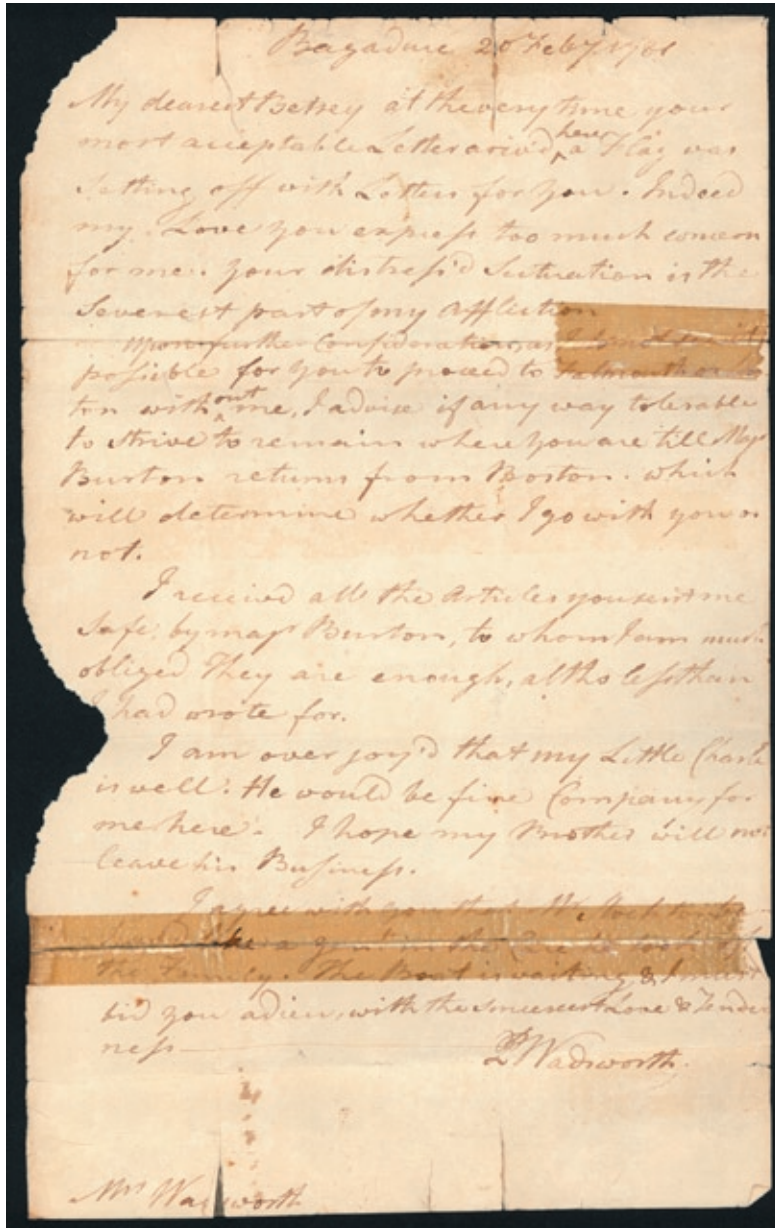 Bagaduce 20 Feby 1781
My dearest Betsey at the very time your
most acceptable Letter arriv'd here a Flag was
Setting off with Letters for you. Indeed
my Love you express too much concern
for me. your distress'd Situation is the
Severest part of my affliction
Upon further Consideration, as
possible for you to proceed to Falmouth or
ton without me, I advise if any way tolerable
to strive to remain where you are till Majr
Burton returns from Boston. which
will determine whether I go with you or
not.
I received all the Articles you sent me
Safe by majr Burton, to whom I am much
obliged They are enough, altho less than
I had wrote for.
I am over joy'd that my Little Charle
is well. He would be fine Company for
me here. I hope my Brother will not
leave his Business.
I agree with you that Mr
like a in the
the Family. The Boat is waiting & I must
bid you adieu, with the sincerest Love & Tender
ness
P Wadsworth
Mrs Wadsworth